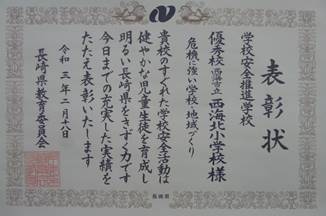 表彰状
学校安全推進学校
優秀校 西海市立 西海北小学校 様
危機に強い学校・地域づくり
貴校のすぐれた学校安全活動は
健やかな児童生徒を育成し
明るい長崎県をきずく力です
今日までの充実した実績を
たたえ表彰いたします
令和三年二月十八日
長崎県教育委員会
長崎県